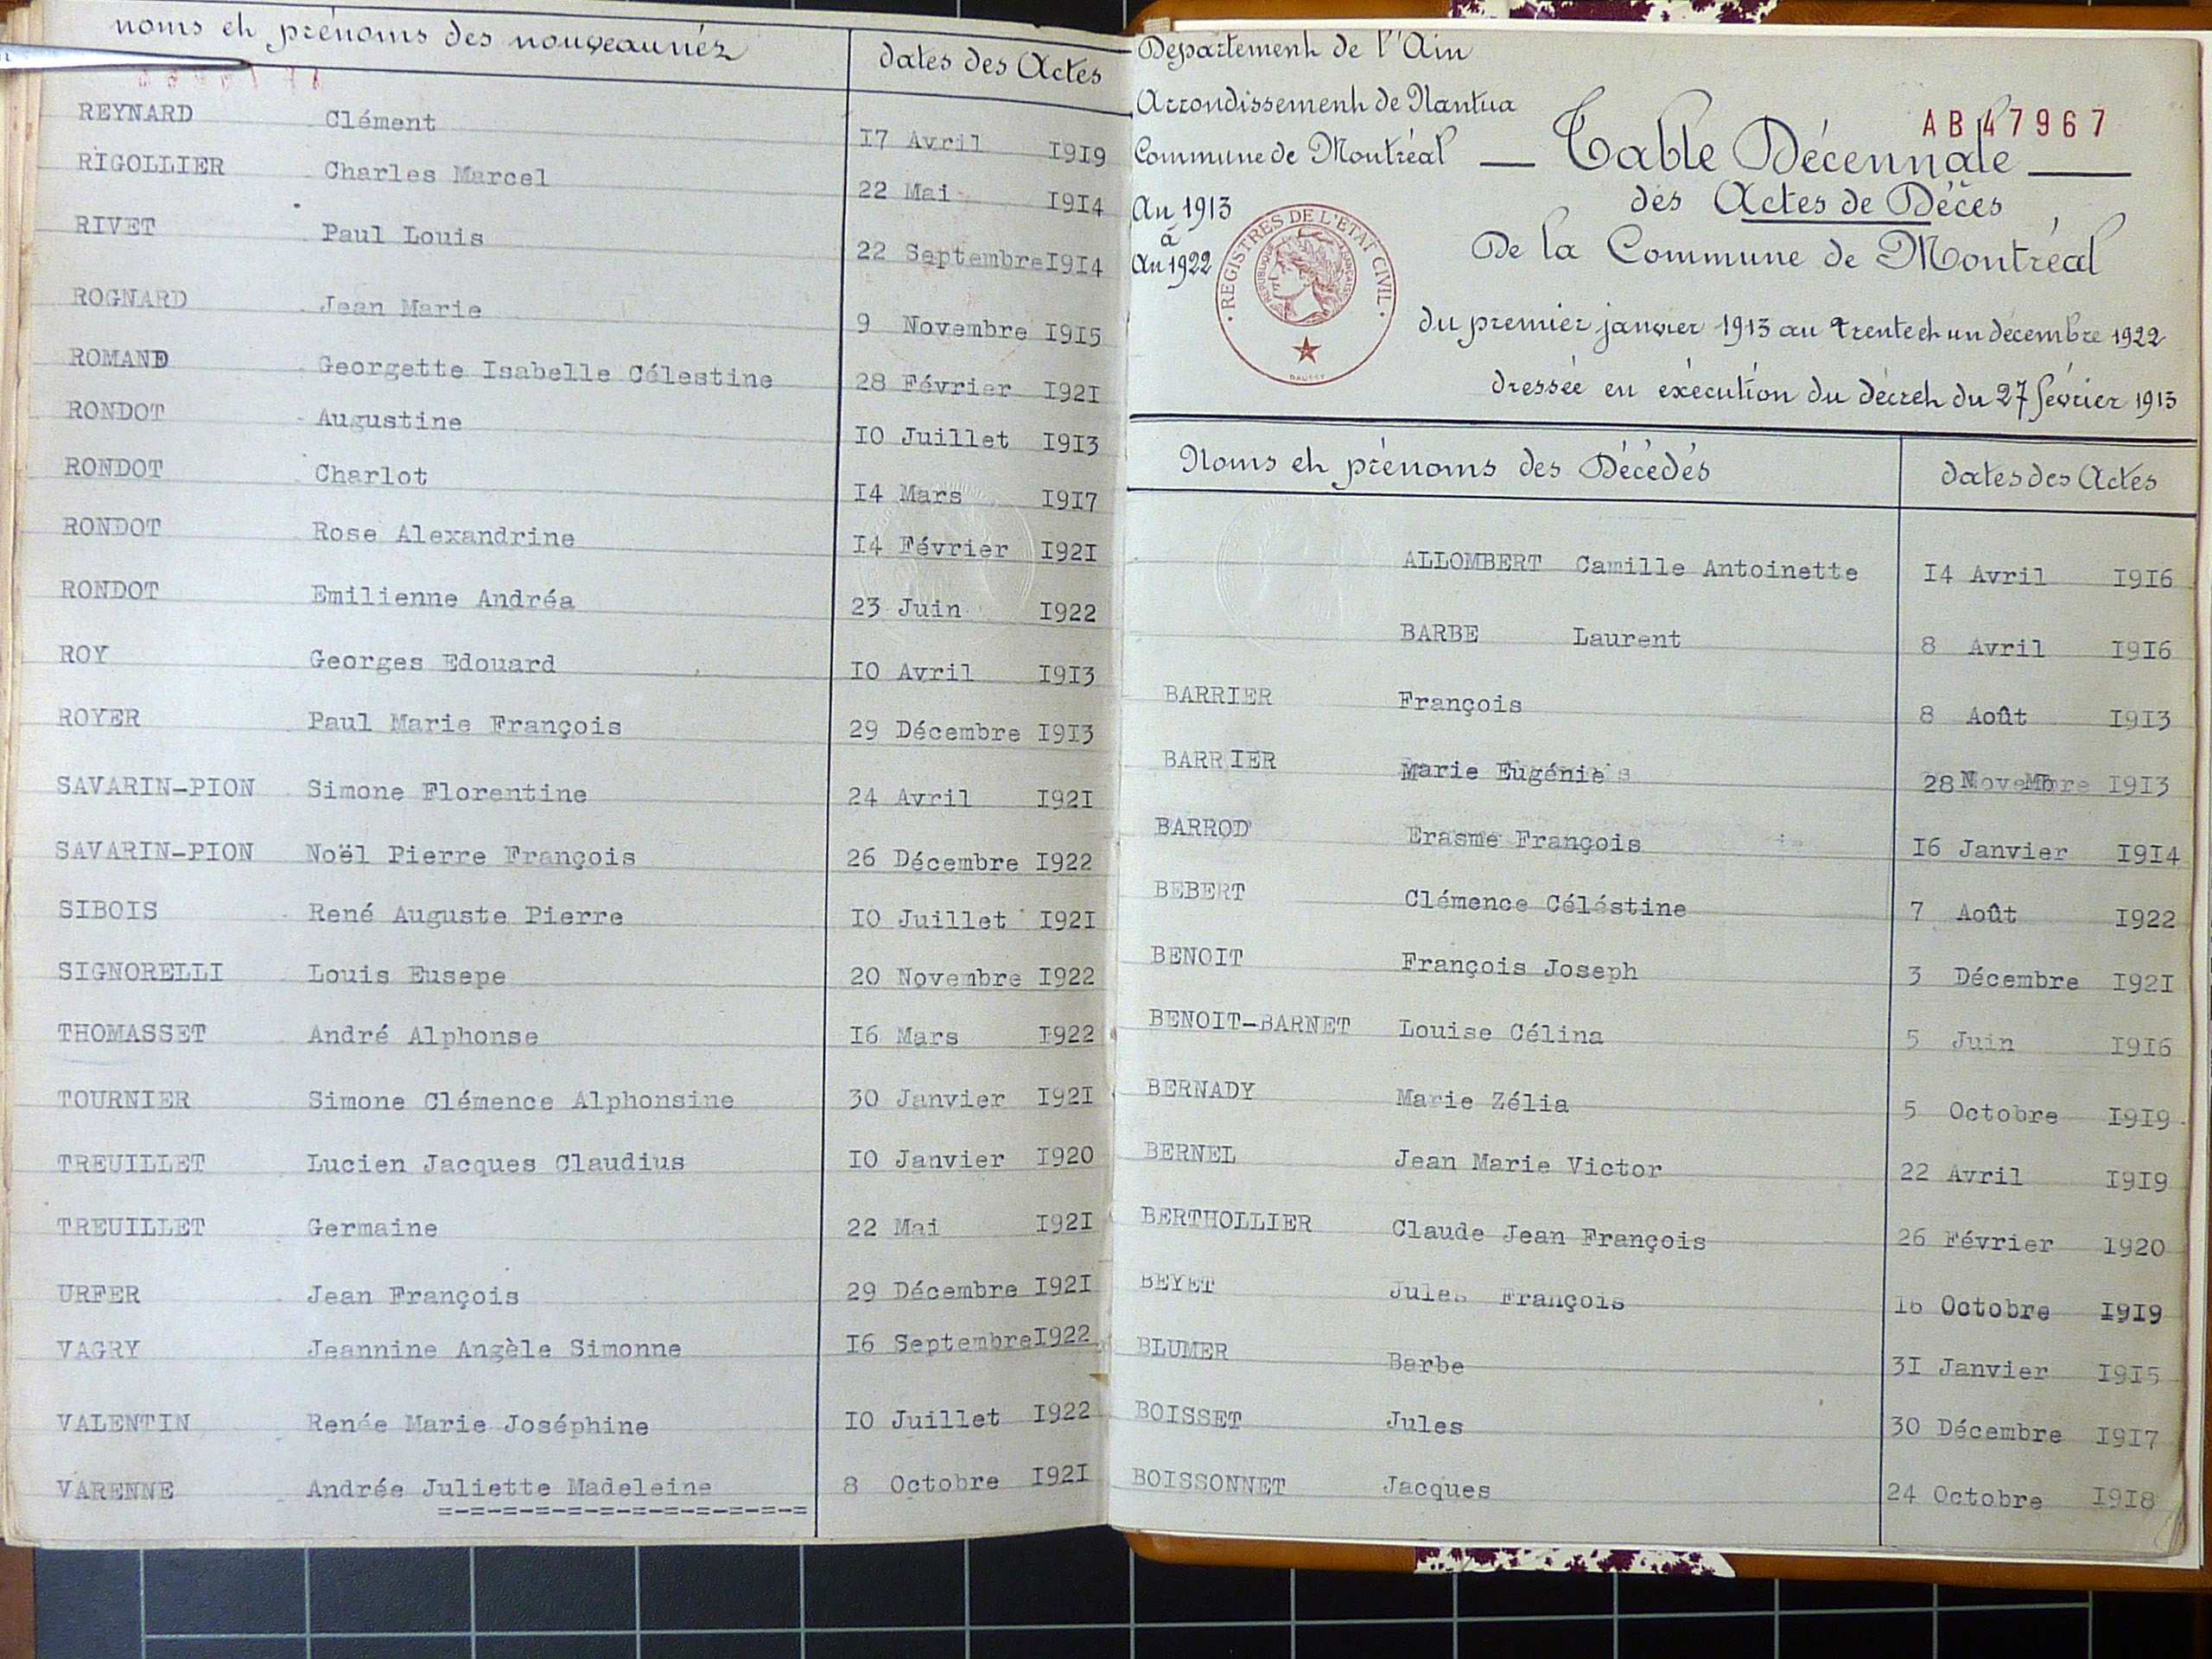 noms et prénoms des nouveaunés dates des Actes
REYNARD Clément 17 Avril 1919
RIGOLLIER Charles Marcel 22 Mai 1914
RIVET Paul Louis 22 Septembre 1914
ROGNARD Jean Marie 9 Novembre 1915
ROMAND Georgette Isabelle Célestine 28 Février 1921
RONDOT Augustine 10 Juillet 1913
RONDOT Charlot 14 Mars 1917
RONDOT Rose Alexandrine 14 Février 1921
RONDOT Emilienne Andréa 23 Juin 1922
ROY Georges Edouard 10 Avril 1913
ROYER Paul Marie François 29 Décembre 1913
SAVARIN-PION Simone Florentine 24 Avril 1921
SAVARIN-PION Noël Pierre François 26 Décembre 1922
SIBOIS René Auguste Pierre 10 Juillet 1921
SIGNORELLI Louis Eusepe 20 Novembre 1922
THOMASSET André Alphonse 16 Mars 1922
TOURNIER Simone Clémence Alphonsine 30 Janvier 1921
TREUILLET Lucien Jacques Claudius 10 Janvier 1920
TREUILLET Germaine 22 Mai 1921
URFER Jean François 29 Décembre 1921
VAGRY Jeannine Angèle Simonne 16 Septembre 1922
VALENTIN Renée Marie Joséphine 10 Juillet 1922
VARENNE Andrée Juliette Madeleine 8 Octobre 1921
=-=-=-=-=-=-=-=-=-=-=-=
Département de l'Ain
Arrondissement de Nantua
Commune de Montréal
An 1913
à
An 1922
REGISTRES DE L'ETAT CIVIL
REPUBLIQUE FRANÇAISE
AB 47967
— Table Décennale —
des Actes de Décès
De la Commune de Montréal
du premier janvier 1913 au trente et un décembre 1922
dressée en exécution du décret du 27 février 1913
Noms et prénoms des Décédés dates des Actes
ALLOMBERT Camille Antoinette 14 Avril 1916
BARBE Laurent 8 Avril 1916
BARRIER François 8 Août 1913
BARRIER Marie Eugénie 28 Novembre 1913
BARROD Erasme François 16 Janvier 1914
BEBERT Clémence Céléstine 7 Août 1922
BENOIT François Joseph 3 Décembre 1921
BENOIT-BARNET Louise Célina 5 Juin 1916
BERNADY Marie Zélia 5 Octobre 1919
BERNEL Jean Marie Victor 22 Avril 1919
BERTHOLLIER Claude Jean François 26 Février 1920
BEYET Jules François 16 Octobre 1919
BLUMER Barbe 31 Janvier 1915
BOISSET Jules 30 Décembre 1917
BOISSONNET Jacques 24 Octobre 1918